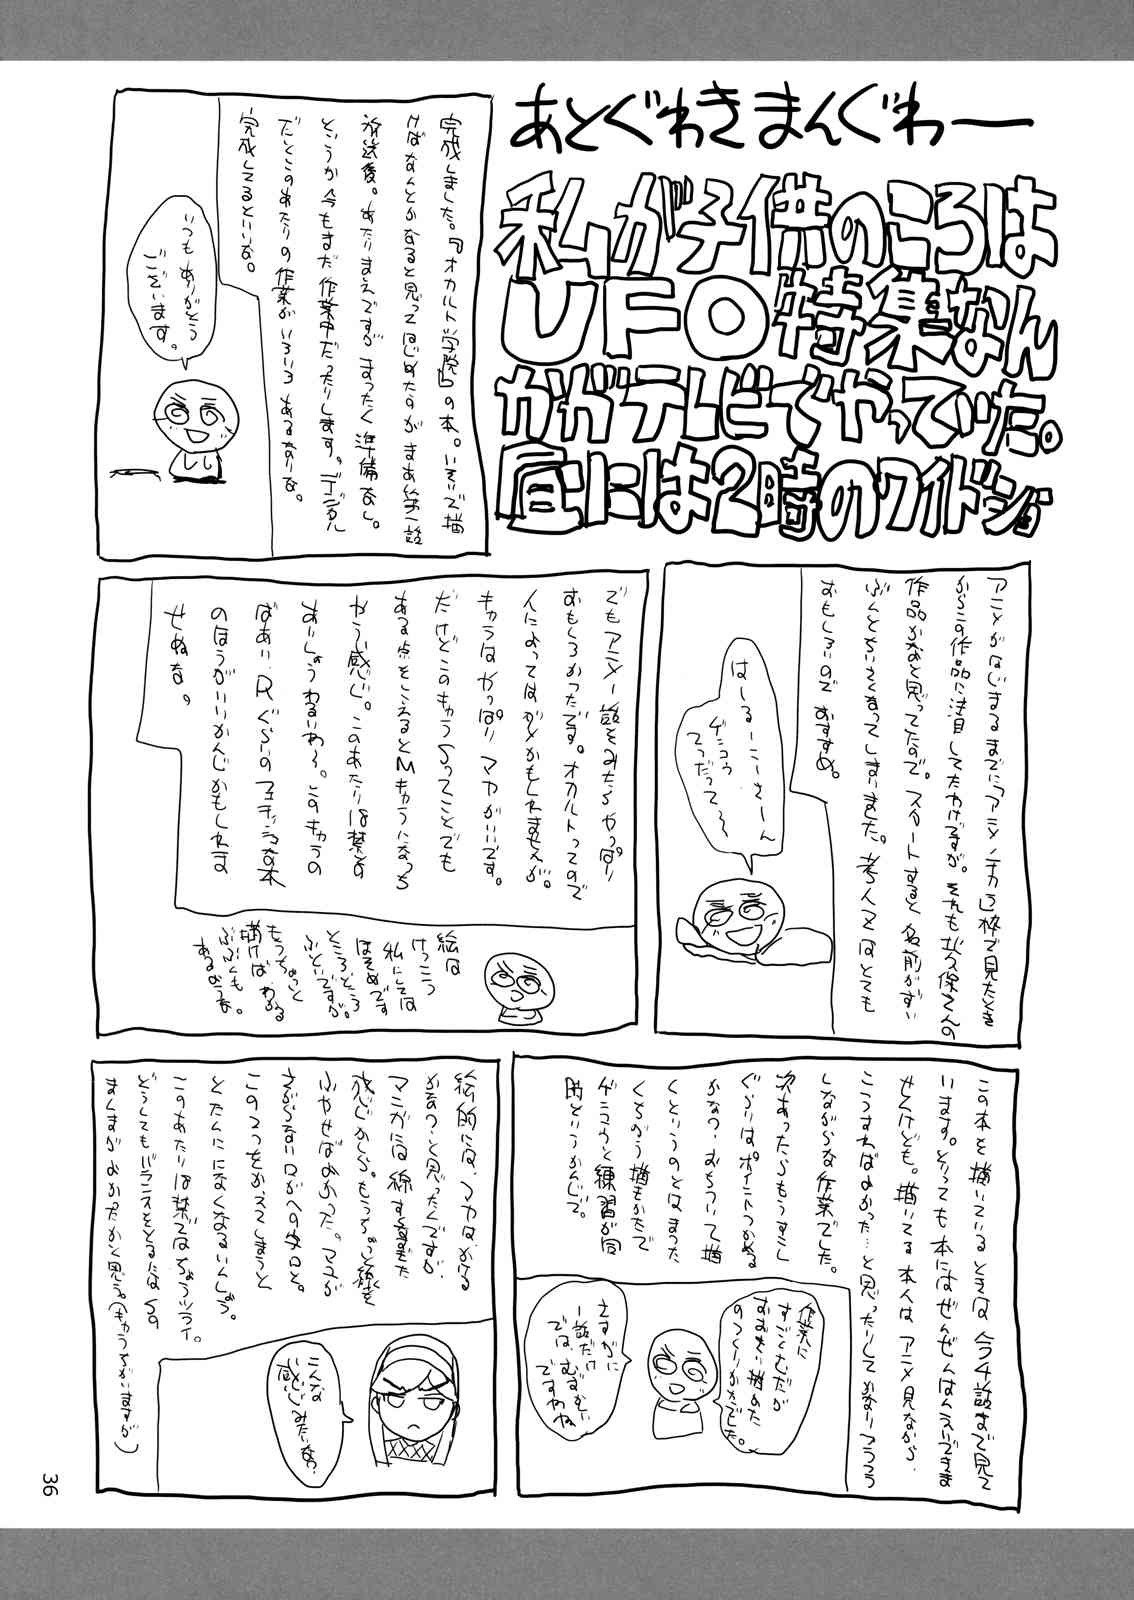 あとぐわきまんぐわー
私が子供のころは
UFO特集なん
かがテレビでやっていた。
昼には2時のワイドショー
完成しました。『オカルト学院』の本。いそいで描
けばなんとかなると思ってはじめたのがまあ第一話
放送後。あたりまえですがまったく準備なし。
というか今もまだ作業中だったりします。デジタル
だとこのあたりの作業がいろいろあるなりな。
完成してるといいな。
いつもありがとう
ございます。
アニメがはじまるまでに「アニメノチカラ」枠で見たとき
からこの作品に注目してたわけですが。それも
作品かなあと思ってたので。スタートすると名前がずい
ぶんとちいさくなってしまいました。
おもしろいのでおすすめ。
はーるーこーさーん
ゲンコウ
てつだって〜
でもアニメ一話をみたらやっぱり
おもしろかったです。オカルトってので
人によってはダメかもしれませんが。
キャラはやっぱりマヤがいいです。
だけどこのキャラSってことでも
ある点をこえるとMキャラになっち
ゃう感じ。このあたりは禁書の
あいしょうわるいわ〜。このキャラの
ばあい、Rぐらいのフェティッシュな本
のほうがいいかんじかもしれま
せぬな。
絵は
けっこう
私にしては
ほそめです
ところどころ
ふといですが。
もうちょっと
描けばわかる
ぶぶんも
あるようなぁ。
この本を描いているときは今4話まで見て
います。とっても本にはぜんぜんはんえいできま
せんけども。描いてる本人はアニメ見ながら、
こうすればよかった…と思ったりしてかなりフラフラ
しながらな作業でした。
次あったらもうすこし
ぐらいはポイントつかめる
かなっ、おちついて描
くというのとはまった
くちがう描きかたで
ゲンコウと練習が同
時というかんじで。
作業に
すごくむだが
おおきい描めた
のつくりかたでした。
さすがに
一話だけ
では、むずかしい
ですわね
絵的には、マヤは、かける
かなっ、と思ったんですが
マンガには線すくなすぎた
感じかしら。もうちょっと線を
ふやせばよかった。マユが
さがらないロがへの字ロと。
この2つをかえてしまうと
とたんにになくなるいんしょう。
このあたりは禁書ではちょうツライ。
どうしてもバランスをとるにはSの
まんまがよかったかと思う。(もうちがいますが)
こんな
感じみたいな？
36